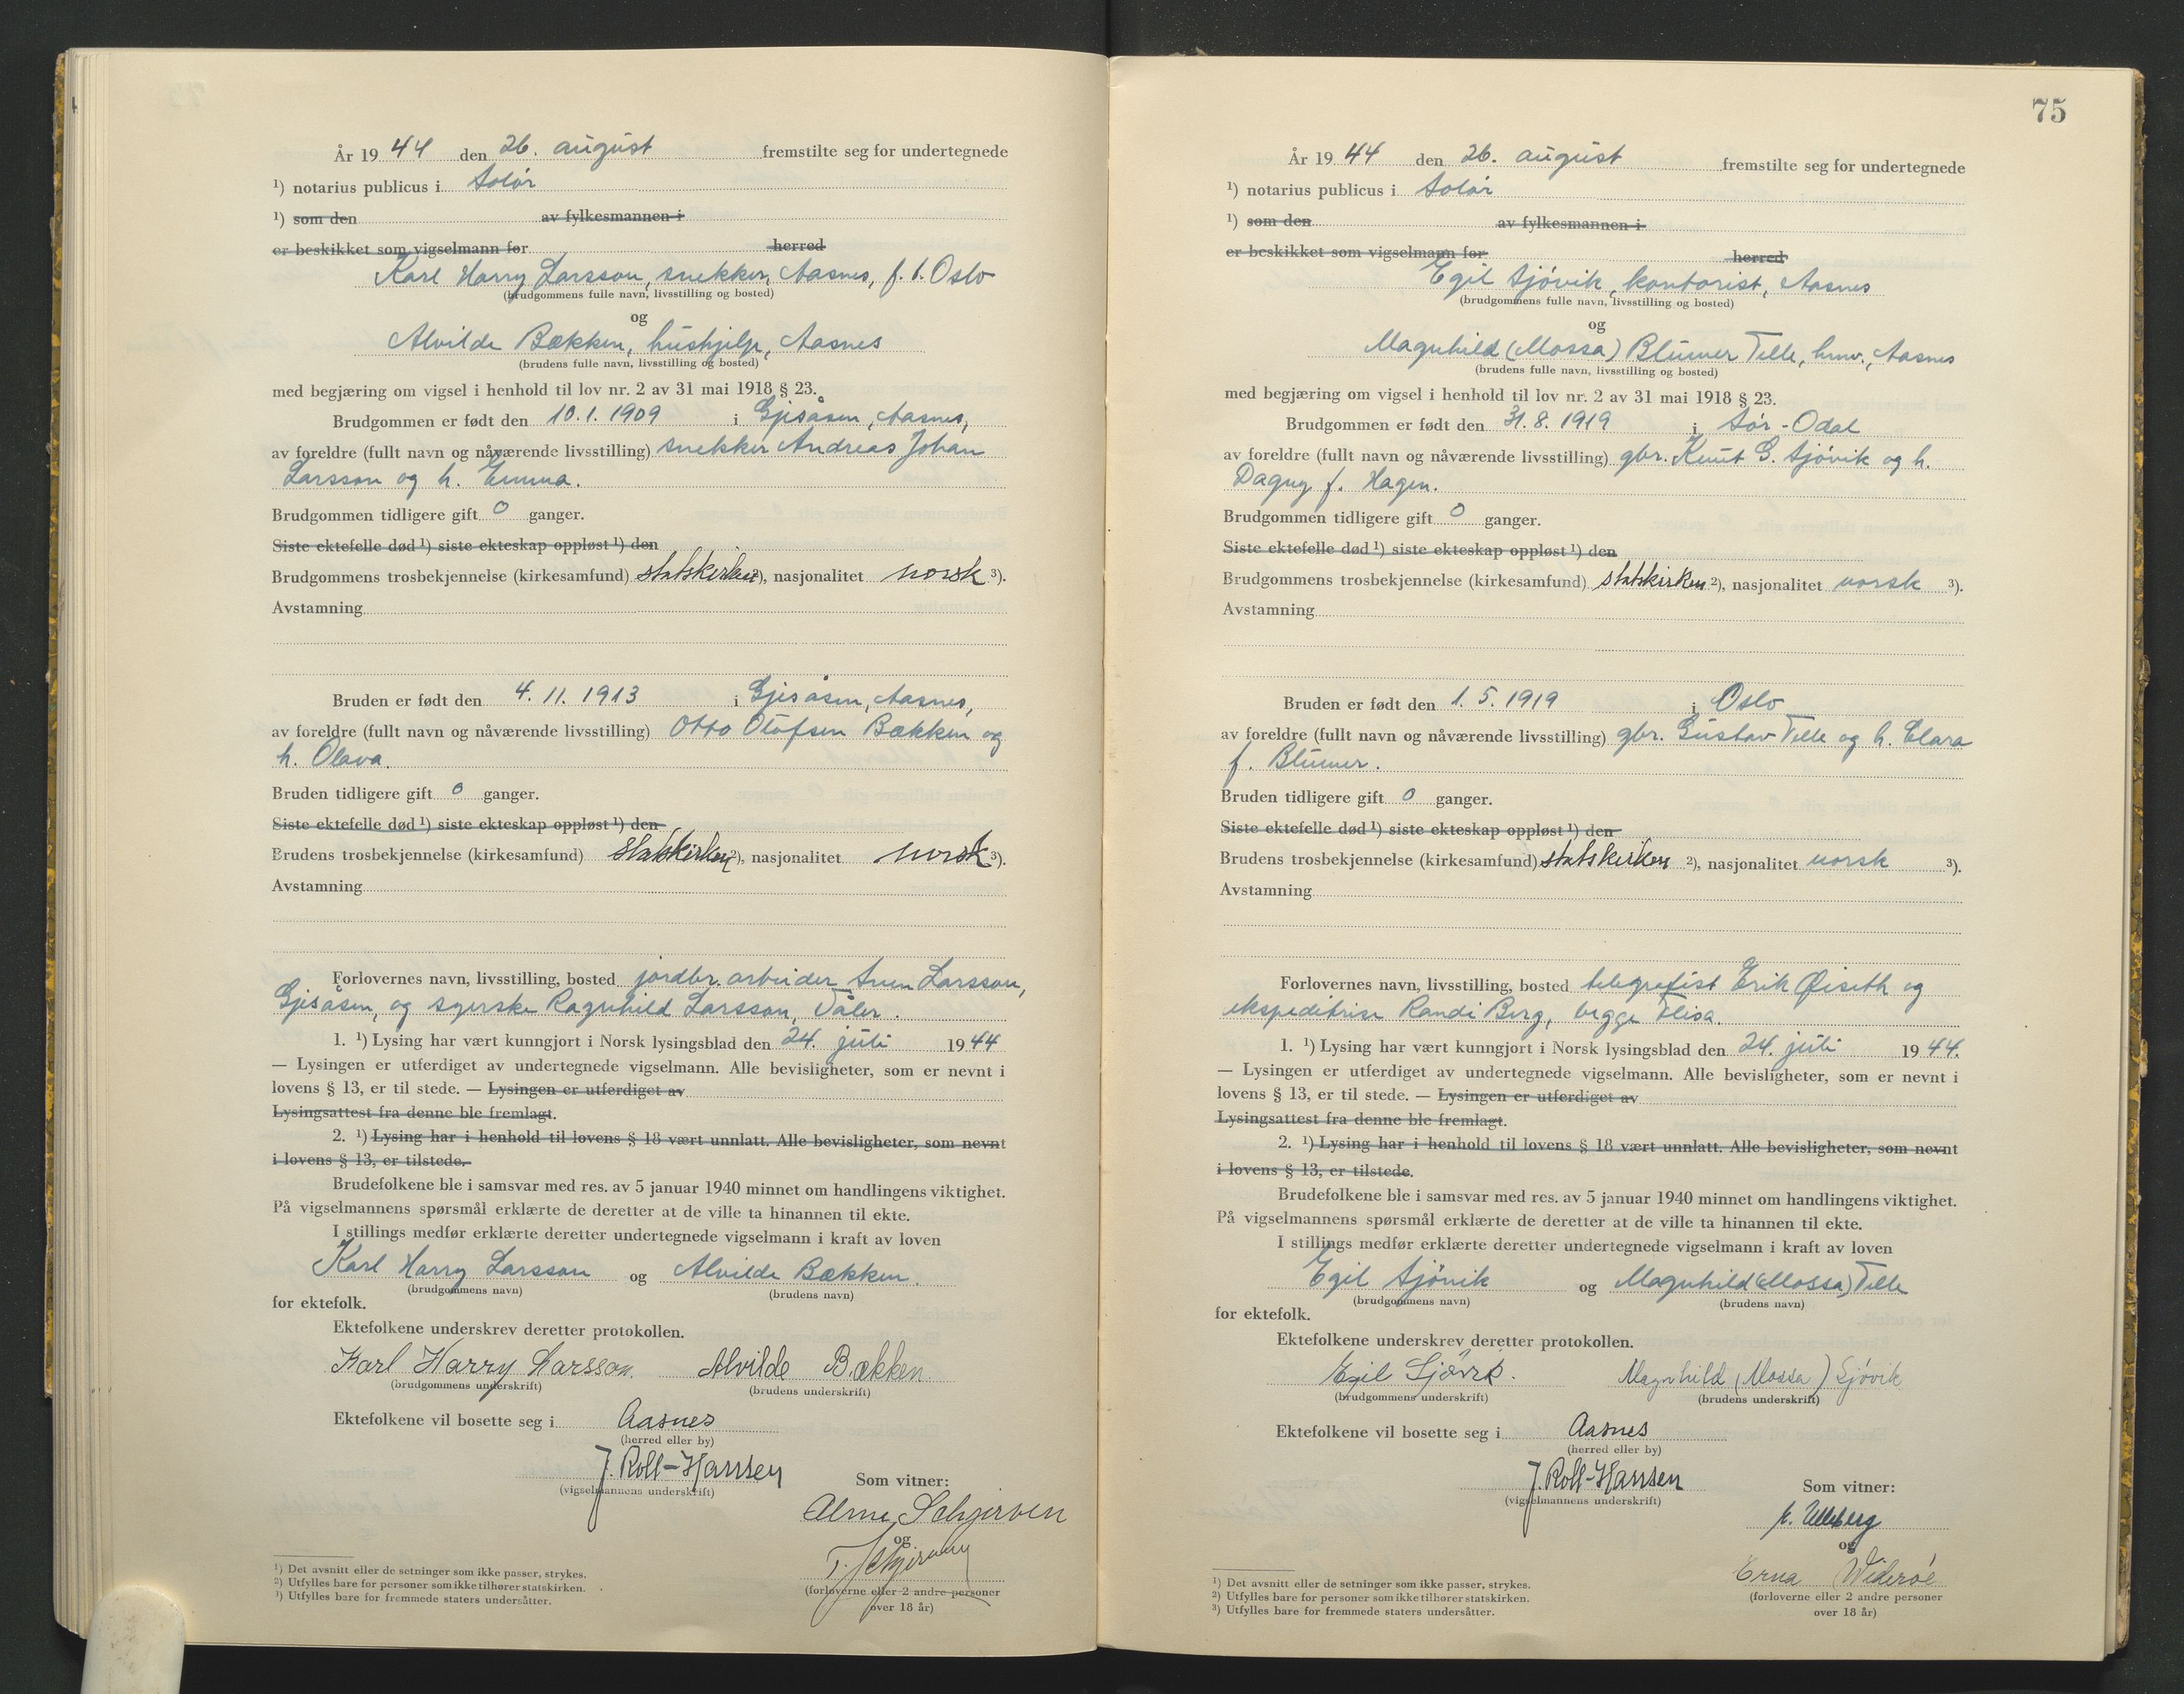 År 19 44 den 26. august fremstilte seg for undertegnede
¹) notarius publicus i Solør
¹) som den av fylkesmannen i
er beskikket som vigselmann for herred
Karl Harry Larsson, snekker, Aasnes, f. t. Oslo
(brudgommens fulle navn, livsstilling og bosted)
og
Alvilde Bækken, hushjelp, Aasnes
(brudens fulle navn, livsstilling og bosted)
med begjæring om vigsel i henhold til lov nr. 2 av 31 mai 1918 § 23.
Brudgommen er født den 10.1.1909 i Gjesåsen, Aasnes,
av foreldre (fullt navn og nåværende livsstilling) snekker Andreas Johan
Larsson og h. Emma.
Brudgommen tidligere gift 0 ganger.
Siste ektefelle død ¹) siste ekteskap oppløst ¹) den
Brudgommens trosbekjennelse (kirkesamfund) statskirken ²), nasjonalitet norsk ³).
Avstamning
Bruden er født den 4.11.1913 i Gjesåsen, Aasnes,
av foreldre (fullt navn og nåværende livsstilling) Otto Olofsen Bækken og
h. Olava.
Bruden tidligere gift 0 ganger.
Siste ektefelle død ¹) siste ekteskap oppløst ¹) den
Brudens trosbekjennelse (kirkesamfund) statskirken ²), nasjonalitet norsk ³).
Avstamning
Forlovernes navn, livsstilling, bosted jordbr.arbeider Sven Larsson,
Gjesåsen, og syerske Ragnhild Larsson, Våler.
1. ¹) Lysing har vært kunngjort i Norsk lysingsblad den 24. juli 19 44
— Lysingen er utferdiget av undertegnede vigselmann. Alle bevisligheter, som er nevnt i
lovens § 13, er til stede. — Lysingen er utferdiget av
Lysingsattest fra denne ble fremlagt.
2. ¹) Lysing har i henhold til lovens § 18 vært unnlatt. Alle bevisligheter, som nevnt
i lovens § 13, er tilstede.
Brudefolkene ble i samsvar med res. av 5 januar 1940 minnet om handlingens viktighet.
På vigselmannens spørsmål erklærte de deretter at de ville ta hinannen til ekte.
I stillings medfør erklærte deretter undertegnede vigselmann i kraft av loven
Karl Harry Larsson og Alvilde Bækken.
(brudgommens navn) (brudens navn)
for ektefolk.
Ektefolkene underskrev deretter protokollen.
Karl Harry Larsson. Alvilde Bækken.
(brudgommens underskrift) (brudens underskrift)
Ektefolkene vil bosette seg i Aasnes
(herred eller by)
J. Roll-Hansen
(vigselmannens underskrift)
Som vitner:
og
(forloverne eller 2 andre personer
over 18 år)
¹) Det avsnitt eller de setninger som ikke passer, strykes.
²) Utfylles bare for personer som ikke tilhører statskirken.
³) Utfylles bare for fremmede staters undersåtter.
75
År 19 44 den 26. august fremstilte seg for undertegnede
¹) notarius publicus i Solør
¹) som den av fylkesmannen i
er beskikket som vigselmann for herred
Egil Sjövik, kontorist, Aasnes
(brudgommens fulle navn, livsstilling og bosted)
og
Magnhild (Mossa) Blumer Telle, hmv., Aasnes
(brudens fulle navn, livsstilling og bosted)
med begjæring om vigsel i henhold til lov nr. 2 av 31 mai 1918 § 23.
Brudgommen er født den 31.8.1919 i Sör-Odal
av foreldre (fullt navn og nåværende livsstilling) gbr. Knut G. Sjövik og h.
Dagny f. Hagen.
Brudgommen tidligere gift 0 ganger.
Siste ektefelle død ¹) siste ekteskap oppløst ¹) den
Brudgommens trosbekjennelse (kirkesamfund) statskirken ²), nasjonalitet norsk ³).
Avstamning
Bruden er født den 1.5.1919 i Oslo
av foreldre (fullt navn og nåværende livsstilling) gbr. Gustav Telle og h. Clara
f. Blumer.
Bruden tidligere gift 0 ganger.
Siste ektefelle død ¹) siste ekteskap oppløst ¹) den
Brudens trosbekjennelse (kirkesamfund) statskirken ²), nasjonalitet norsk ³).
Avstamning
Forlovernes navn, livsstilling, bosted telegrafist Erik Øiseth og
ekspeditrise Randi Berg, begge Flisa.
1. ¹) Lysing har vært kunngjort i Norsk lysingsblad den 24. juli 19 44.
— Lysingen er utferdiget av undertegnede vigselmann. Alle bevisligheter, som er nevnt i
lovens § 13, er til stede. — Lysingen er utferdiget av
Lysingsattest fra denne ble fremlagt.
2. ¹) Lysing har i henhold til lovens § 18 vært unnlatt. Alle bevisligheter, som nevnt
i lovens § 13, er tilstede.
Brudefolkene ble i samsvar med res. av 5 januar 1940 minnet om handlingens viktighet.
På vigselmannens spørsmål erklærte de deretter at de ville ta hinannen til ekte.
I stillings medfør erklærte deretter undertegnede vigselmann i kraft av loven
Egil Sjövik og Magnhild (Mossa) Telle
(brudgommens navn) (brudens navn)
for ektefolk.
Ektefolkene underskrev deretter protokollen.
Egil Sjövik. Magnhild (Mossa) Sjövik
(brudgommens underskrift) (brudens underskrift)
Ektefolkene vil bosette seg i Aasnes
(herred eller by)
J. Roll-Hansen
(vigselmannens underskrift)
Som vitner:
Ulleberg
og
Erna Wideröe
(forloverne eller 2 andre personer
over 18 år)
¹) Det avsnitt eller de setninger som ikke passer, strykes.
²) Utfylles bare for personer som ikke tilhører statskirken.
³) Utfylles bare for fremmede staters undersåtter.